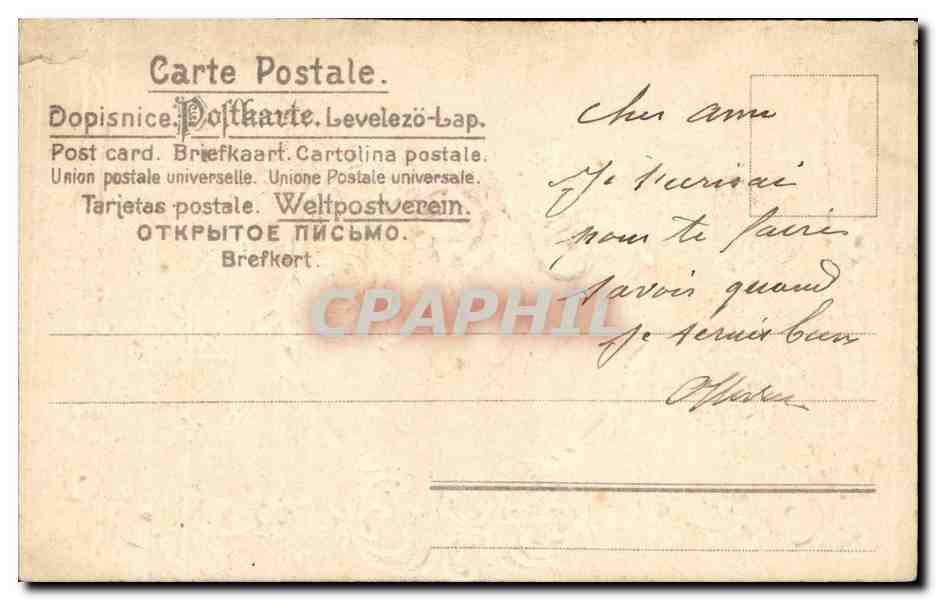 Carte Postale.
Dopisnice. Postkarte. Levelezö-Lap.
Post card. Briefkaart. Cartolina postale.
Union postale universelle. Unione Postale universale.
Tarjetas postale. Weltpostverein.
ОТКРЫТОЕ ПИСЬМО.
Brefkort.
Cher ami
Je t'ecrirai
pour te faire
savoir quand
Je serais bien
CPAPHIL